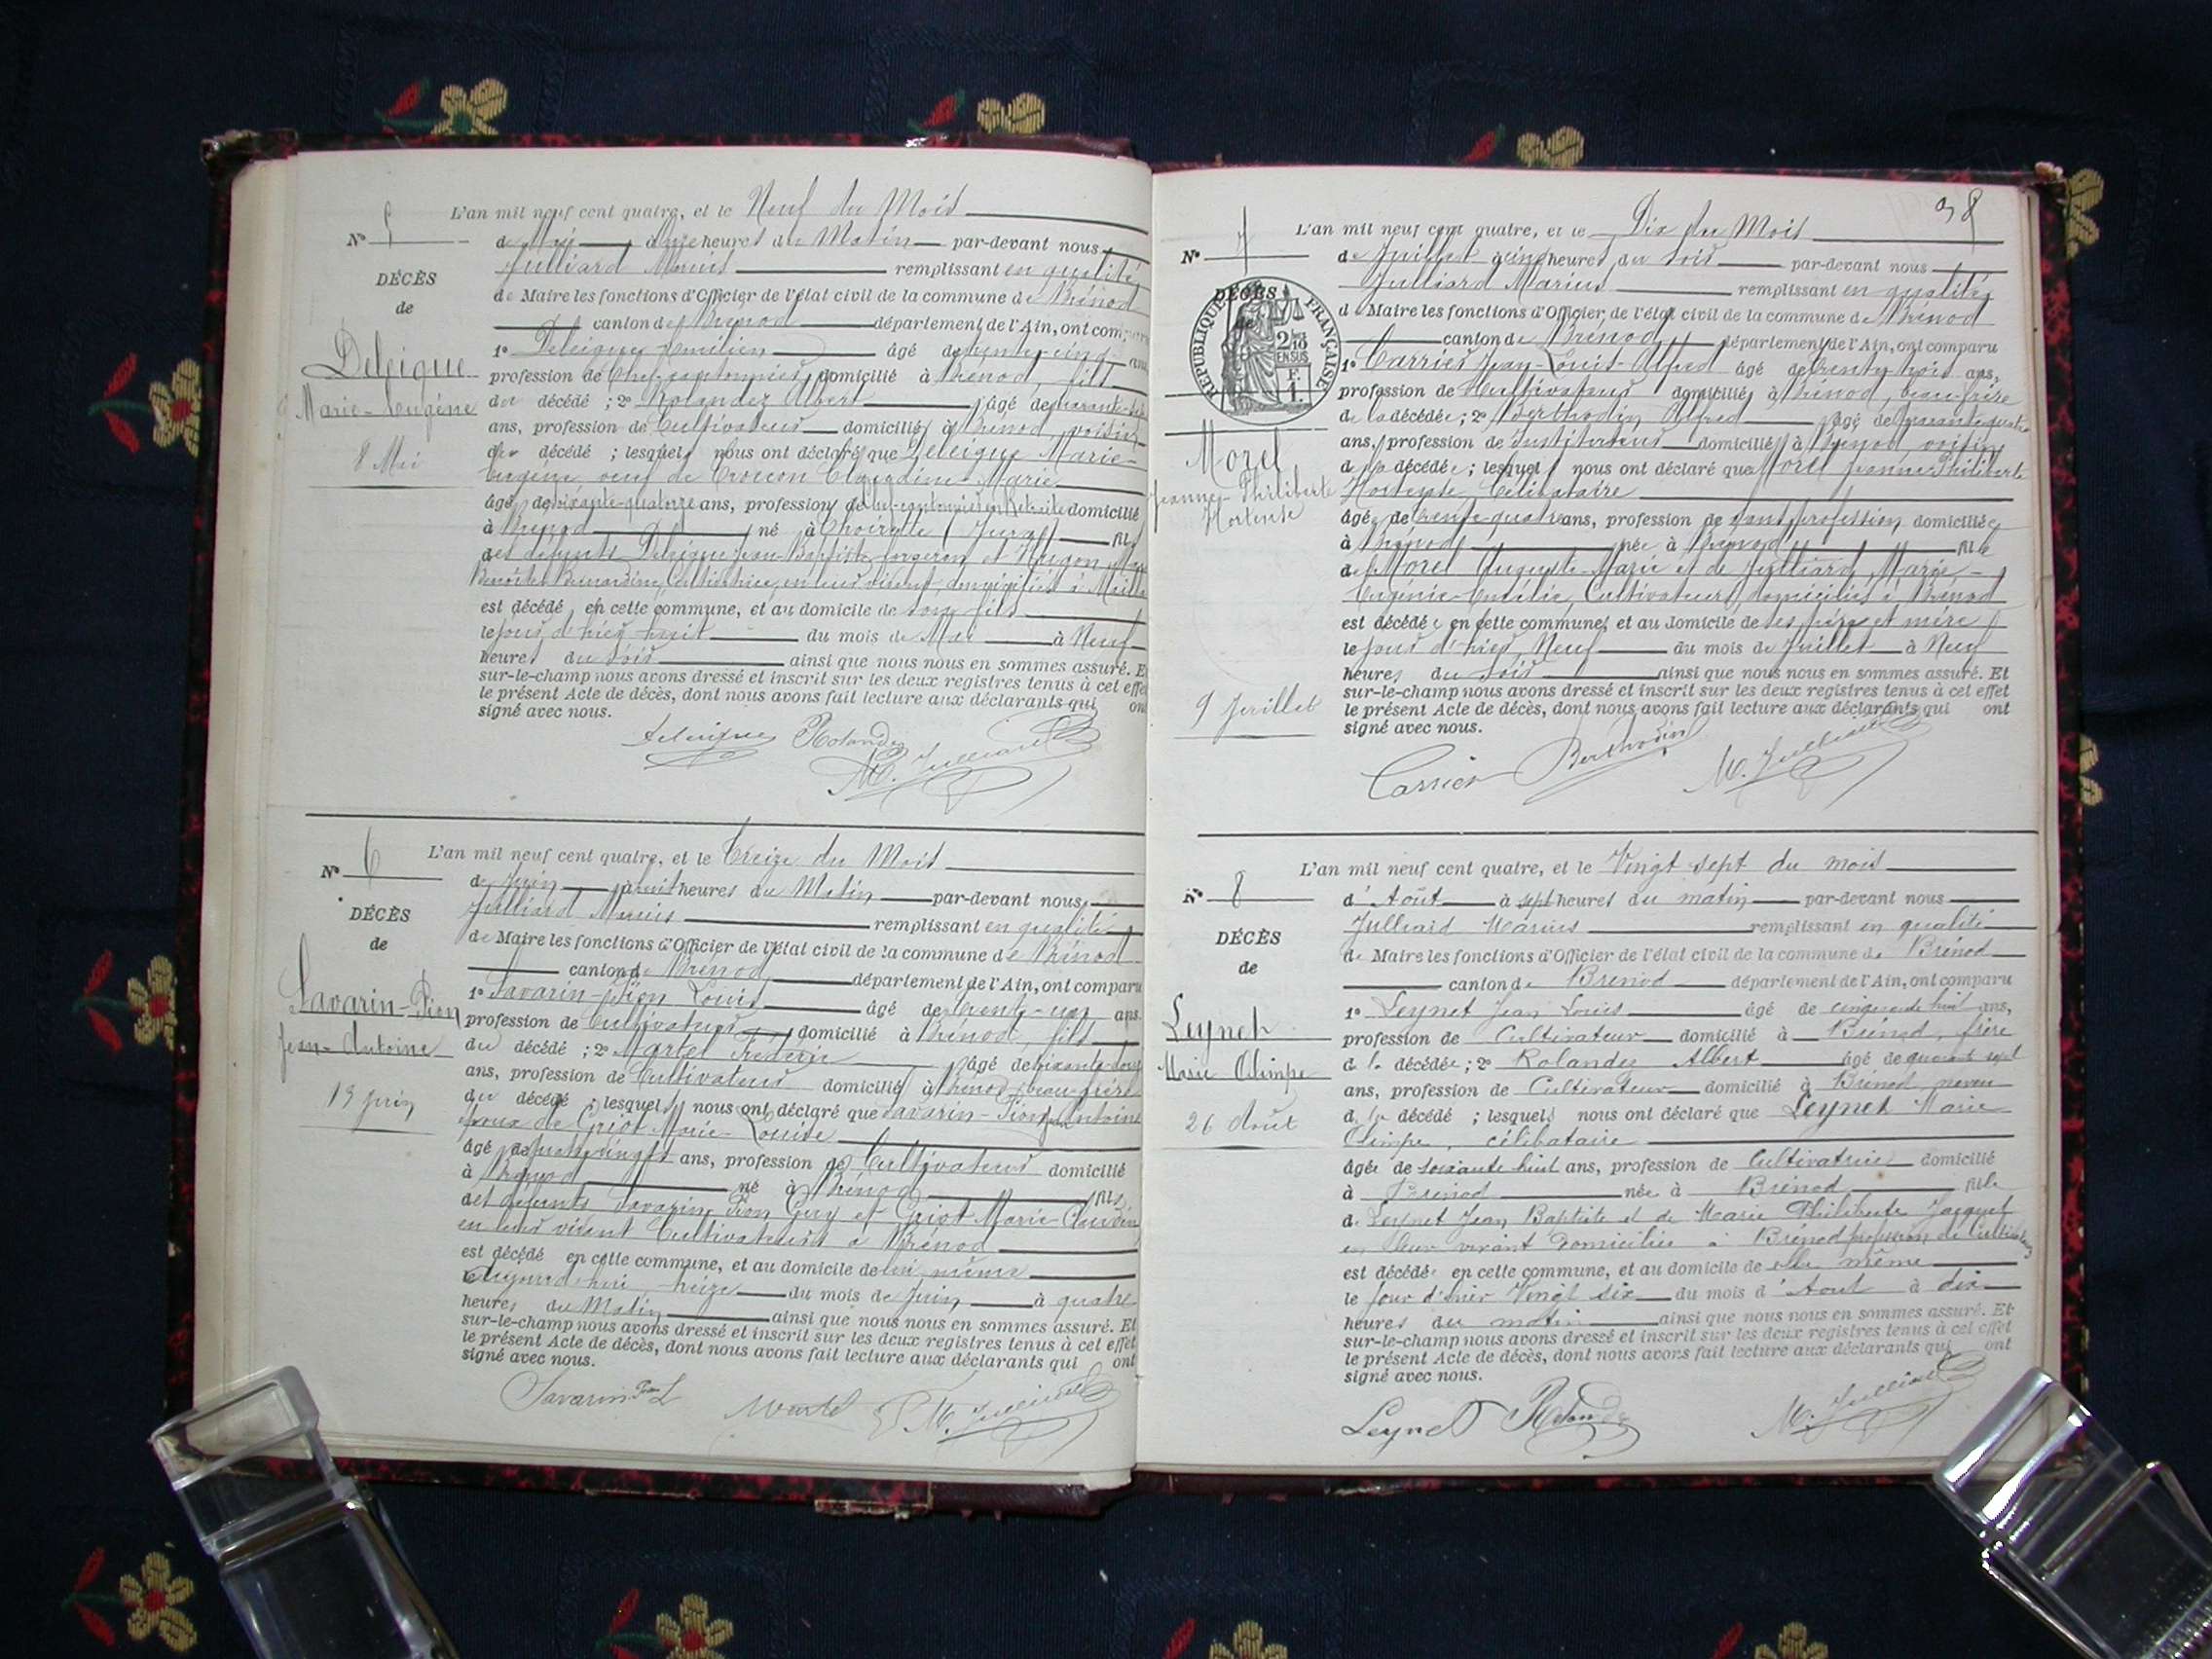 L'an mil neuf cent quatre, et le Neuf du Mois
N° 5
de Mai à onze heures du Matin par-devant nous
Julliard Marius remplissant en qualité
DÉCÈS
de
de Maire les fonctions d'Officier de l'état civil de la commune de Brénod
canton de Brénod département de l'Ain, ont comparu
Deleigue
Marie-Eugène
8 Mai
1° Deleigue Emilien âgé de trente cinq ans
profession de Chef-cantonnier domicilié à Brénod, fils
du décédé ; 2° Rolandez Albert âgé de quarante-six
ans, profession de Cultivateur domicilié à Brénod, voisin
du décédé ; lesquels nous ont déclaré que Deleigue Marie-
Eugène, veuf de Claudine Marie
âgé de soixante-quatorze ans, profession de chef-cantonnier en Retraite domicilié
à Brénod né à (Jura) fils
des défunts Deleigue Jean-Baptiste forgeron et Hugon
Benoîte Bernardine, Cultivatrice, en leur vivant, domiciliés à
est décédé en cette commune, et au domicile de son fils
le jour d'hier huit du mois de Mai à Neuf
heures du soir ainsi que nous nous en sommes assuré. Et
sur-le-champ nous avons dressé et inscrit sur les deux registres tenus à cet effet
le présent Acte de décès, dont nous avons fait lecture aux déclarants qui ont
signé avec nous.
Deleigue Rolandez
M. Julliard
L'an mil neuf cent quatre, et le Treize du Mois
N° 6
de Juin à huit heures du Matin par-devant nous
Julliard Marius remplissant en qualité
DÉCÈS
de
de Maire les fonctions d'Officier de l'état civil de la commune de Brénod
canton de Brénod département de l'Ain, ont comparu
Savarin-Pion
Jean-Antoine
13 juin
1° Savarin-Pion Louis âgé de trente-un ans
profession de Cultivateur domicilié à Brénod, fils
du décédé ; 2° Martel Frédéric âgé de soixante-douze
ans, profession de Cultivateur domicilié à Brénod, beau-frère
du décédé ; lesquels nous ont déclaré que Savarin-Pion Jean Antoine
époux de Griot Marie-Louise
âgé de quatre vingts ans, profession de Cultivateur domicilié
à Brénod né à Brénod fils
des défunts Savarin Pion Guy et Griot Marie Claudine
en leur vivant Cultivateurs à Brénod
est décédé en cette commune, et au domicile de lui même
Aujourd'hui treize du mois de Juin à quatre
heures du Matin ainsi que nous nous en sommes assuré. Et
sur-le-champ nous avons dressé et inscrit sur les deux registres tenus à cet effet
le présent Acte de décès, dont nous avons fait lecture aux déclarants qui ont
signé avec nous.
Savarin Pion L Martel F M. Julliard
98
L'an mil neuf cent quatre, et le Dix du Mois
N° 7
de Juillet à cinq heures du soir par-devant nous
Julliard Marius remplissant en qualité
DÉCÈS
de
RÉPUBLIQUE FRANÇAISE
2/10 EN SUS
F. 1.
de Maire les fonctions d'Officier de l'état civil de la commune de Brénod
canton de Brénod département de l'Ain, ont comparu
Morel
Jeanne-Philiberte
Hortense
9 Juillet
1° Carrier Jean-Louis-Alfred âgé de trente trois ans,
profession de Cultivateur domicilié à Brénod, beau-frère
de la décédée ; 2° Berthodin Alfred âgé de quarante quatre
ans, profession de Instituteur domicilié à Brénod, voisin
de la décédée ; lesquels nous ont déclaré que Morel Jeanne Philiberte
Hortense Célibataire
âgée de trente quatre ans, profession de sans profession domiciliée
à Brénod née à Brénod fille
de Morel Auguste-Marie et de Julliard Marie-
Eugénie-Emélie, Cultivateurs domiciliés à Brénod
est décédée en cette commune, et au domicile de ses père et mère
le jour d'hier, Neuf du mois de Juillet à Neuf
heures du soir ainsi que nous nous en sommes assuré. Et
sur-le-champ nous avons dressé et inscrit sur les deux registres tenus à cet effet
le présent Acte de décès, dont nous avons fait lecture aux déclarants qui ont
signé avec nous.
Carrier Berthodin M. Julliard
L'an mil neuf cent quatre, et le Vingt sept du mois
N° 8
d'Août à sept heures du matin par-devant nous
Julliard Marius remplissant en qualité
DÉCÈS
de
de Maire les fonctions d'Officier de l'état civil de la commune de Brénod
canton de Brénod département de l'Ain, ont comparu
Leynet
Marie Olimpe
26 Août
1° Leynet Jean Louis âgé de cinquante huit ans,
profession de Cultivateur domicilié à Brénod, frère
de la décédée ; 2° Rolandez Albert âgé de quarante sept
ans, profession de Cultivateur domicilié à Brénod neveu
de la décédé ; lesquels nous ont déclaré que Leynet Marie
Olimpe, célibataire
âgée de soixante huit ans, profession de Cultivatrice domicilié
à Brénod née à Brénod fille
de Leynet Jean Baptiste et de Marie Philiberte Jacquet
en leur vivant domicilié à Brénod profession de Cultivateurs
est décédée en cette commune, et au domicile de elle même
le jour d'hier Vingt six du mois d'Août à dix
heures du matin ainsi que nous nous en sommes assuré. Et
sur-le-champ nous avons dressé et inscrit sur les deux registres tenus à cet effet
le présent Acte de décès, dont nous avons fait lecture aux déclarants qui ont
signé avec nous.
Leynet Rolandez M. Julliard